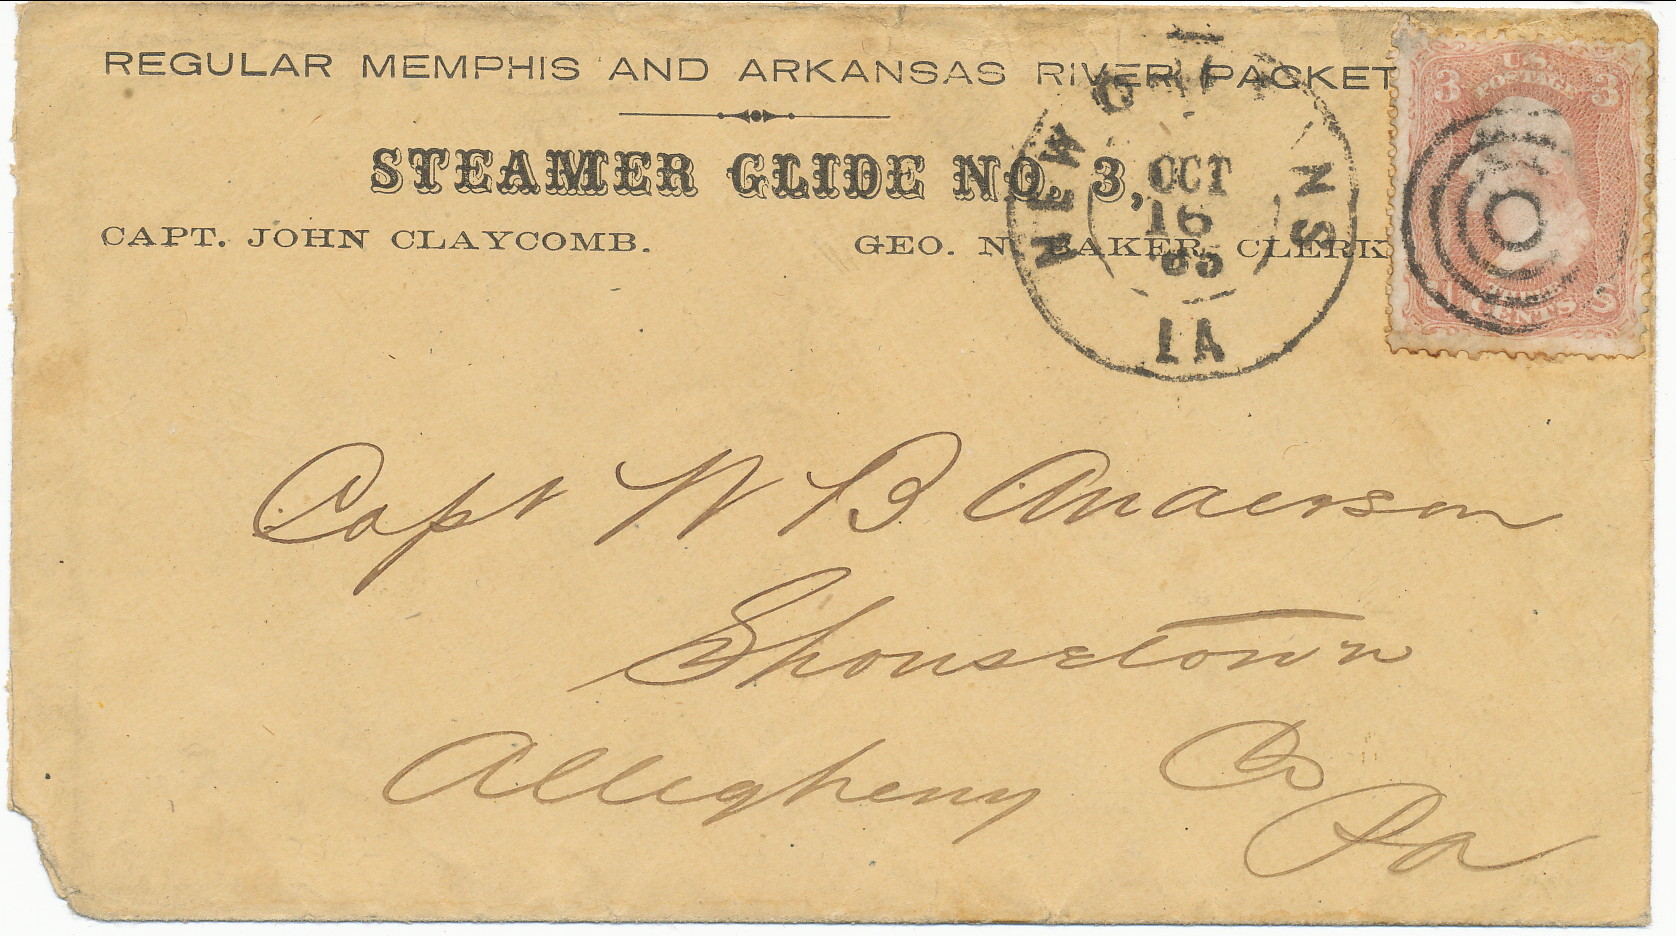 REGULAR MEMPHIS AND ARKANSAS RIVER PACKET
STEAMER GLIDE NO. 3,
CAPT. JOHN CLAYCOMB. GEO. N. BAKER, CLERK
NEW O NS
OCT
16
65
LA
U.S.
POSTAGE
3 3
CENTS
Capt W B Anderson
Shousetown
Allegheny Co
Pa